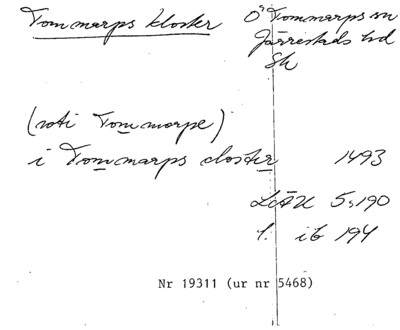 Tommarps kloster
Ö Tommarps sn
Järrestads hd
Sk
(uti Tommarpe)
i Tommarps closter 1493
LÄU 5:190
ib 194
Nr 19311 (ur nr 5468)